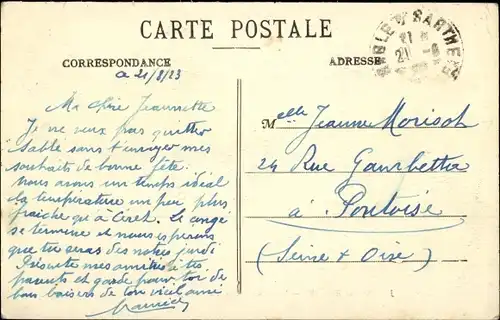 CARTE POSTALE
CORRESPONDANCE
ADRESSE
SABLÉ S/ SARTHE
21 -8
le 21/8/23
Ma chère Jeannette
Je ne veux pas quitter
Sablé sans t'envoyer mes
souhaits de bonne fête.
Nous avons un temps idéal
la température un peu plus
fraîche qu'à Ciret. Le congé
se termine et nous espérons
que tu seras des nôtres jeudi
Présente mes amitiés à tes
parents et garde pour toi de
bons baisers de ton vieil ami
Maurice
Melle Jeanne Morisot
24 Rue Gambetta
à Pontoise
(Seine & Oise)